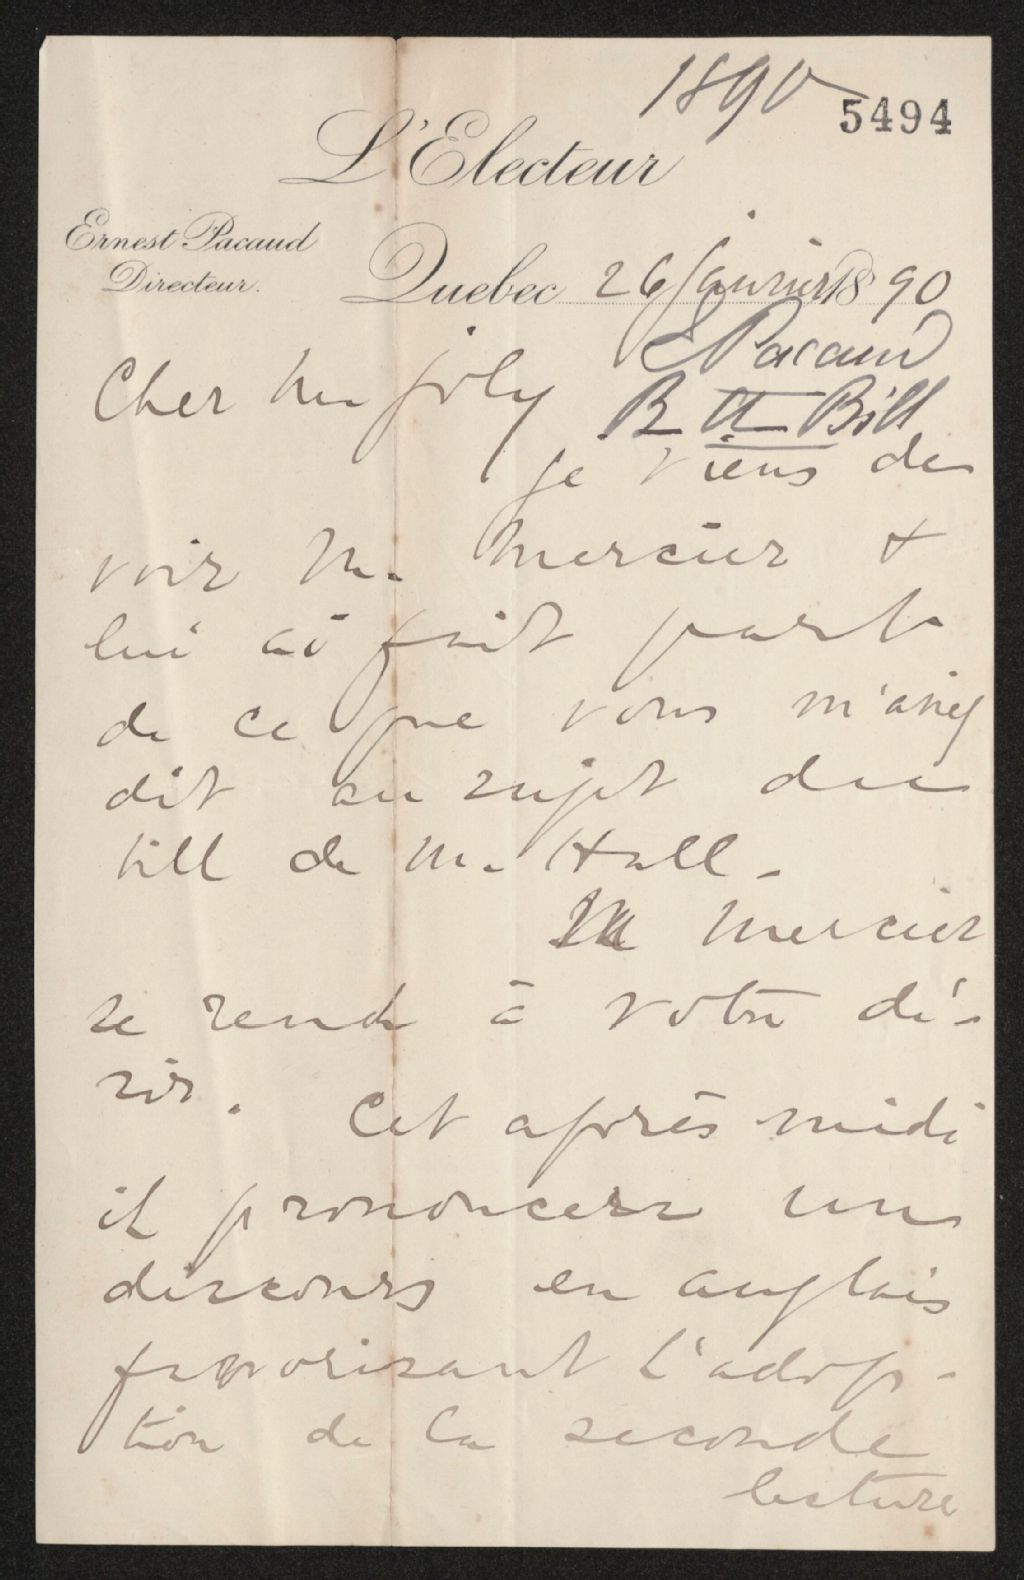 1890
5494
L'Electeur
Ernest Pacaud
Directeur.
Quebec 26 janvier 1890
E Pacaud
B Bill
Cher Mr Joly
je viens de
voir M. Mercier +
lui ai fait part
de ce que vous m'avez
dit au sujet du
bill de M. Hall.
M Mercier
se rend à votre dé-
sir. Cet après midi
il prononcera un
discours en anglais
favorisant l'adop-
tion de la seconde
lecture